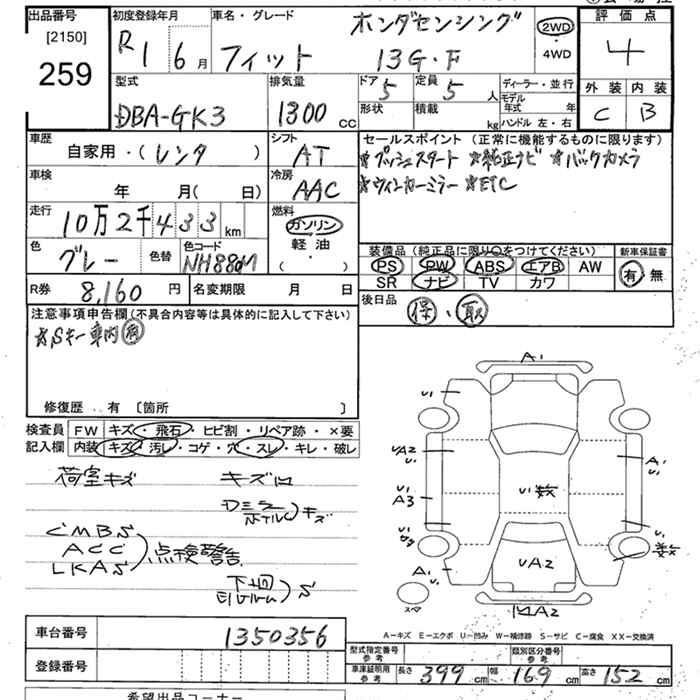 出品番号 初度登録年月 車名・グレード ホンダセンシング 2WD 評価点
[2150] R1 6月 フィット 13G・F ・4WD 4
259 型式 排気量 ドア 5 定員 5人 ディーラー・並行 外装 内装
DBA-GK3 1300cc 形状 積載 kg モデル年式 年 C B
ハンドル 左・右
車歴 自家用・(レンタ) シフト AT セールスポイント (正常に機能するものに限ります)
★プッシュスタート ★純正ナビ ★バックカメラ
車検 年 月(日) 冷房 AAC ★ウィンカーミラー ★ETC
走行 10万2千433km 燃料 ガソリン
軽油
( ・ )
色 グレー 色替 色コード NH880M 装備品 (純正品に限り○をつけてください) 新車保証書
PS PW ABS エアB AW 有・無
SR ナビ TV カワ
R券 8,160円 名変期限 月 日 後日品 保・取
注意事項申告欄(不具合内容等は具体的に記入して下さい)
★Sキー車内有
修復歴・有 〔箇所 〕
検査員 FW キズ・飛石・ヒビ割・リペア跡・×要
記入欄 内装 キズ・汚レ・コゲ・穴・スレ・キレ・破レ
荷室キズ キズ凹
Dミラー
ホイル)キズ
CMBS
ACC
LKAS)点検警告
下回
)S
A1
U1
UA2 A1
U1
U1
A3 U1数
U1 U1
数
A1 UA2
U1
U1
スペア A2
A－キズ E－エクボ U－凹み W－補修跡 S－サビ C－腐食 XX－交換済
車台番号 1350356
登録番号
型式指定番号 参考 類別区分番号 参考
車庫証明用 参考 長さ 399cm 幅 169cm 高さ 152cm
希望出品コーナー